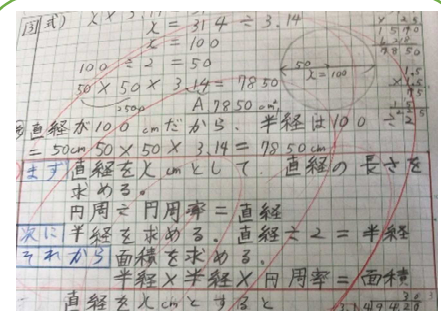 式) x × 3.14 =
x = 314 ÷ 3.14
x = 100
100 ÷ 2 = 50
50 × 50 × 3.14 = 7850
2500
A 7850 cm²
50
x = 100
7850
直経が100cmだから、半経は100÷2
= 50cm 50 × 50 × 3.14 = 7850 cm
まず 直経をxcmとして 直経の長さを
求める。
円周÷円周率=直経
次に 半経を求める。直経÷2=半経
それから 面積を求める。
半経×半経×円周率=面積
直経をxcmとすると